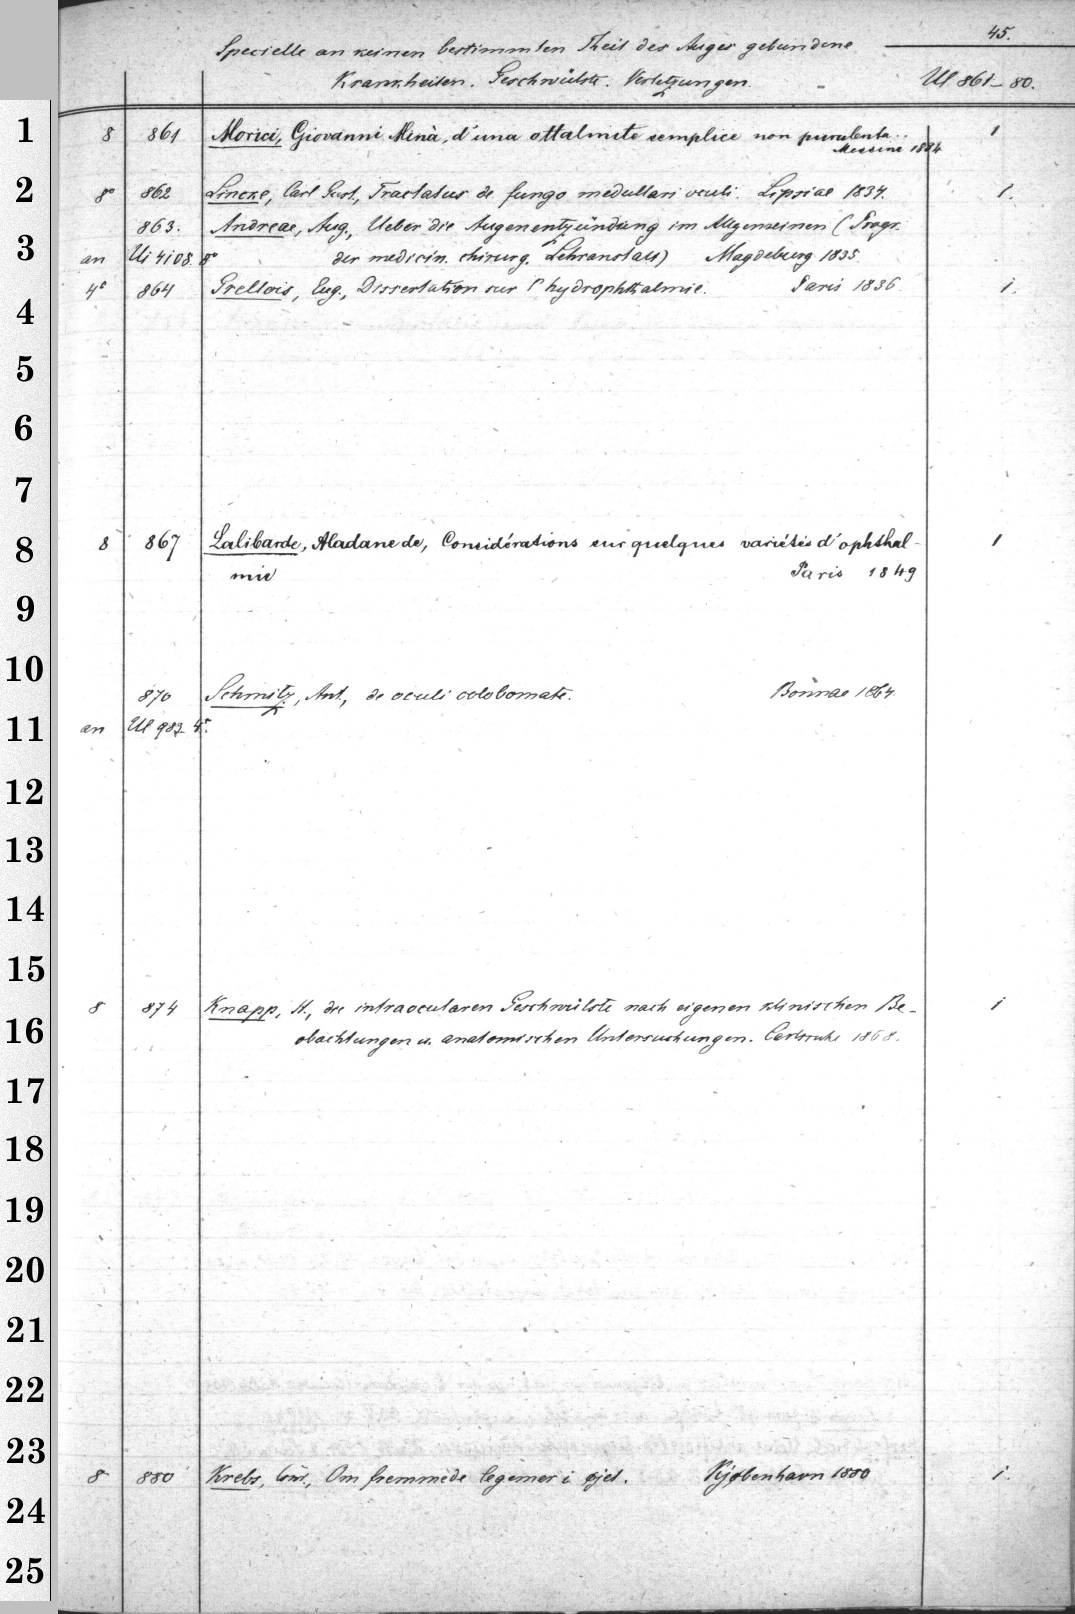 45.
Specielle an keinen bestimmten Theil des Auges gebundene
Krankheiten. Geschwülste. Verletzungen. Ul 861–80.
1 8 861 Morici, Giovanni Minà, d'una ottalmite semplice non purulenta..  1
Messina 1834
2 8° 862 Lincke, Carl Gust., Tractatus de fungo medullari oculi. Lipsiae 1834. 1.
863. Andreae, Aug., Ueber die Augenentzündung im Allgemeinen (Progr.
3 an Ui 4108. 8° der medicin. chirurg. Lehranstalt) Magdeburg 1835.
4° 864 Grellois, Eug., Dissertation sur l'hydrophthalmie. Paris 1836. 1.
4
5
6
7
8 8 867 Lalibarde, Aladane de, Considérations sur quelques variétés d'ophthal- 1
mie Paris 1849
9
10
870 Schmitz, Ant., de oculi colobomate. Bonnae 1864.
11 an Ul 983 4°.
12
13
14
15
8 874 Knapp, H., die intraocularen Geschwülste nach eigenen klinischen Be- 1
16 obachtungen u. anatomischen Untersuchungen. Carlsruhe 1868.
17
18
19
20
21
22
23
8 880 Krebs, Om fremmede legemer i øjet. Kjøbenhavn 1880 1.
24
25